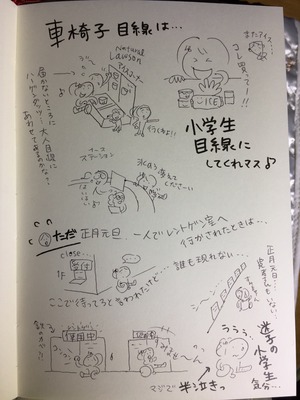 車椅子目線は…
Natural
Lawson
アイスコーナー
♪
またアイス…
コレ買って〜!!
ICE
届かないところに
ハーゲンダッツ…大人目線に
あわせてあるのかな…
行くわよ!!
小学生
目線に
してくれマス♪
ナース
ステーション
氷のう替えて
くださーい
はいはい
ただ 正月元旦、一人でレントゲン室へ
行かされたときは…
close…
受付
1F
誰も現れない…
ここで待ってろと言われたけど…
シ〜ン…
正月元旦…
誰もいない…
使用中
コンコン
すみませーん
ううう…
迷子の
小学生
気分…
マジで半泣きっ